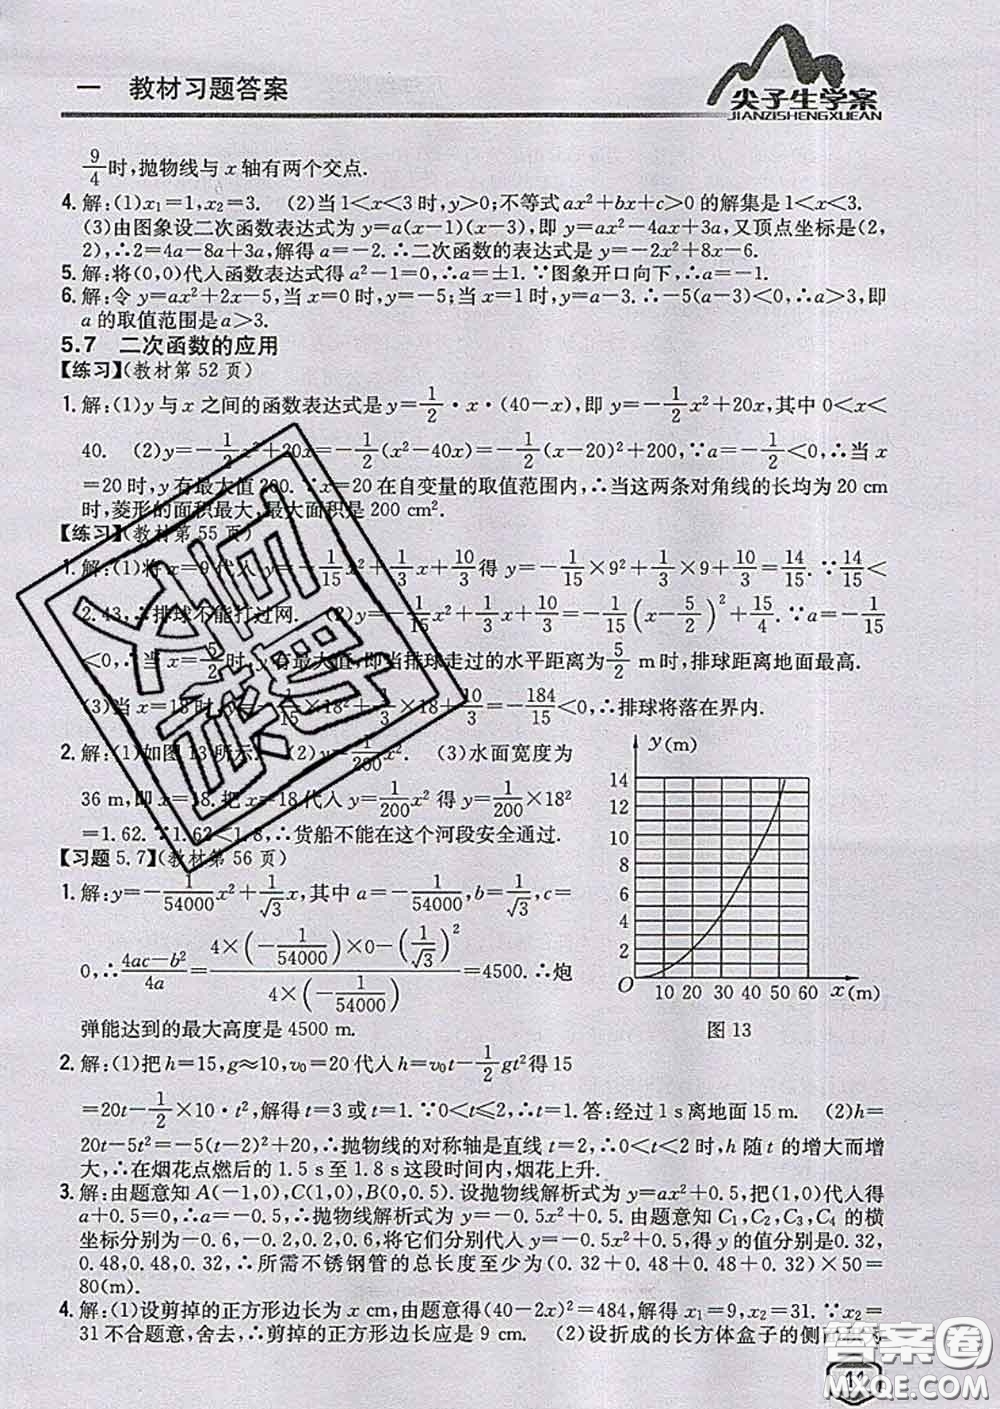 一 教材习题答案
尖子生学案
JIANZISHENGXUEAN
9/4时,抛物线与 x 轴有两个交点.
4. 解:(1)x₁=1,x₂=3. (2)当 1<x<3 时,y>0;不等式 ax²+bx+c>0 的解集是 1<x<3.
(3)由图象设二次函数表达式为 y=a(x-1)(x-3),即 y=ax²-4ax+3a,又顶点坐标是(2,
2),∴2=4a-8a+3a,解得 a=-2.∴二次函数的表达式是 y=-2x²+8x-6.
5. 解:将(0,0)代入函数表达式得 a²-1=0,∴a=±1.∵图象开口向下,∴a=-1.
6. 解:令 y=ax²+2x-5,当 x=0 时,y=-5;当 x=1 时,y=a-3.∴-5(a-3)<0,∴a>3,即
a 的取值范围是 a>3.
5.7 二次函数的应用
【练习】(教材第 52 页)
1. 解:(1)y 与 x 之间的函数表达式是 y=1/2·x·(40-x),即 y=-1/2x²+20x,其中 0<x<
40. (2)y=-1/2x²+20x=-1/2(x²-40x)=-1/2(x-20)²+200,∵a=-1/2<0,∴当 x
=20 时,y 有最大值 200.∵x=20 在自变量的取值范围内,∴当这两条对角线的长均为 20 cm
时,菱形的面积最大,最大面积是 200 cm².
【练习】(教材第 55 页)
1. 解:(1)将 x=9 代入 y=-1/15x²+1/3x+10/3得 y=-1/15×9²+1/3×9+10/3=14/15.∵14/15<
2.43,∴排球不能打过网. (2)y=-1/15x²+1/3x+10/3=-1/15(x-5/2)²+15/4.∵a=-1/15
<0,∴当 x=5/2时,y 有最大值,即当排球走过的水平距离为5/2 m时,排球距离地面最高.
(3)当 x=18时,y=-1/15×18²+1/3×18+10/3=-184/15<0,∴排球将落在界内.
2. 解:(1)如图 13 所示. (2)y=1/200x². (3)水面宽度为
36 m,即 x=18.把 x=18 代入 y=1/200x² 得 y=1/200×18²
=1.62.∵1.62<1.8,∴货船不能在这个河段安全通过.
y(m)
14
12
10
8
6
4
2
O 10 20 30 40 50 60 x(m)
图 13
【习题 5.7】(教材第 56 页)
1. 解:y=-1/54000x²+1/√3x,其中 a=-1/54000,b=1/√3,c=
0,∴(4ac-b²)/4a=(4×(-1/54000)×0-(1/√3)²)/(4×(-1/54000))=4500.∴炮
弹能达到的最大高度是 4500 m.
2. 解:(1)把 h=15,g≈10,v₀=20 代入 h=v₀t-1/2gt²得 15
=20t-1/2×10·t²,解得 t=3 或 t=1.∵0<t≤2,∴t=1.答:经过 1 s 离地面 15 m. (2)h=
20t-5t²=-5(t-2)²+20,∴抛物线的对称轴是直线 t=2,∴0<t<2 时,h 随 t 的增大而增
大,∴在烟花点燃后的 1.5 s 至 1.8 s 这段时间内,烟花上升.
3. 解:由题意知 A(-1,0),C(1,0),B(0,0.5).设抛物线解析式为 y=ax²+0.5,把(1,0)代入得
a+0.5=0,∴a=-0.5,∴抛物线解析式为 y=-0.5x²+0.5.由题意知 C₁,C₂,C₃,C₄ 的横
坐标分别为-0.6,-0.2,0.2,0.6,将它们分别代入 y=-0.5x²+0.5,得 y 的值分别是 0.32,
0.48,0.48,0.32,∴所需不锈钢管的总长度至少为(0.32+0.48+0.48+0.32)×50=
80(m).
4. 解:(1)设剪掉的正方形边长为 x cm,由题意得(40-2x)²=484,解得 x₁=9,x₂=31.∵x₂=
31 不合题意,舍去,∴剪掉的正方形边长应是 9 cm. (2)设折成的长方体盒子的侧
答案圈
MXQE.COM